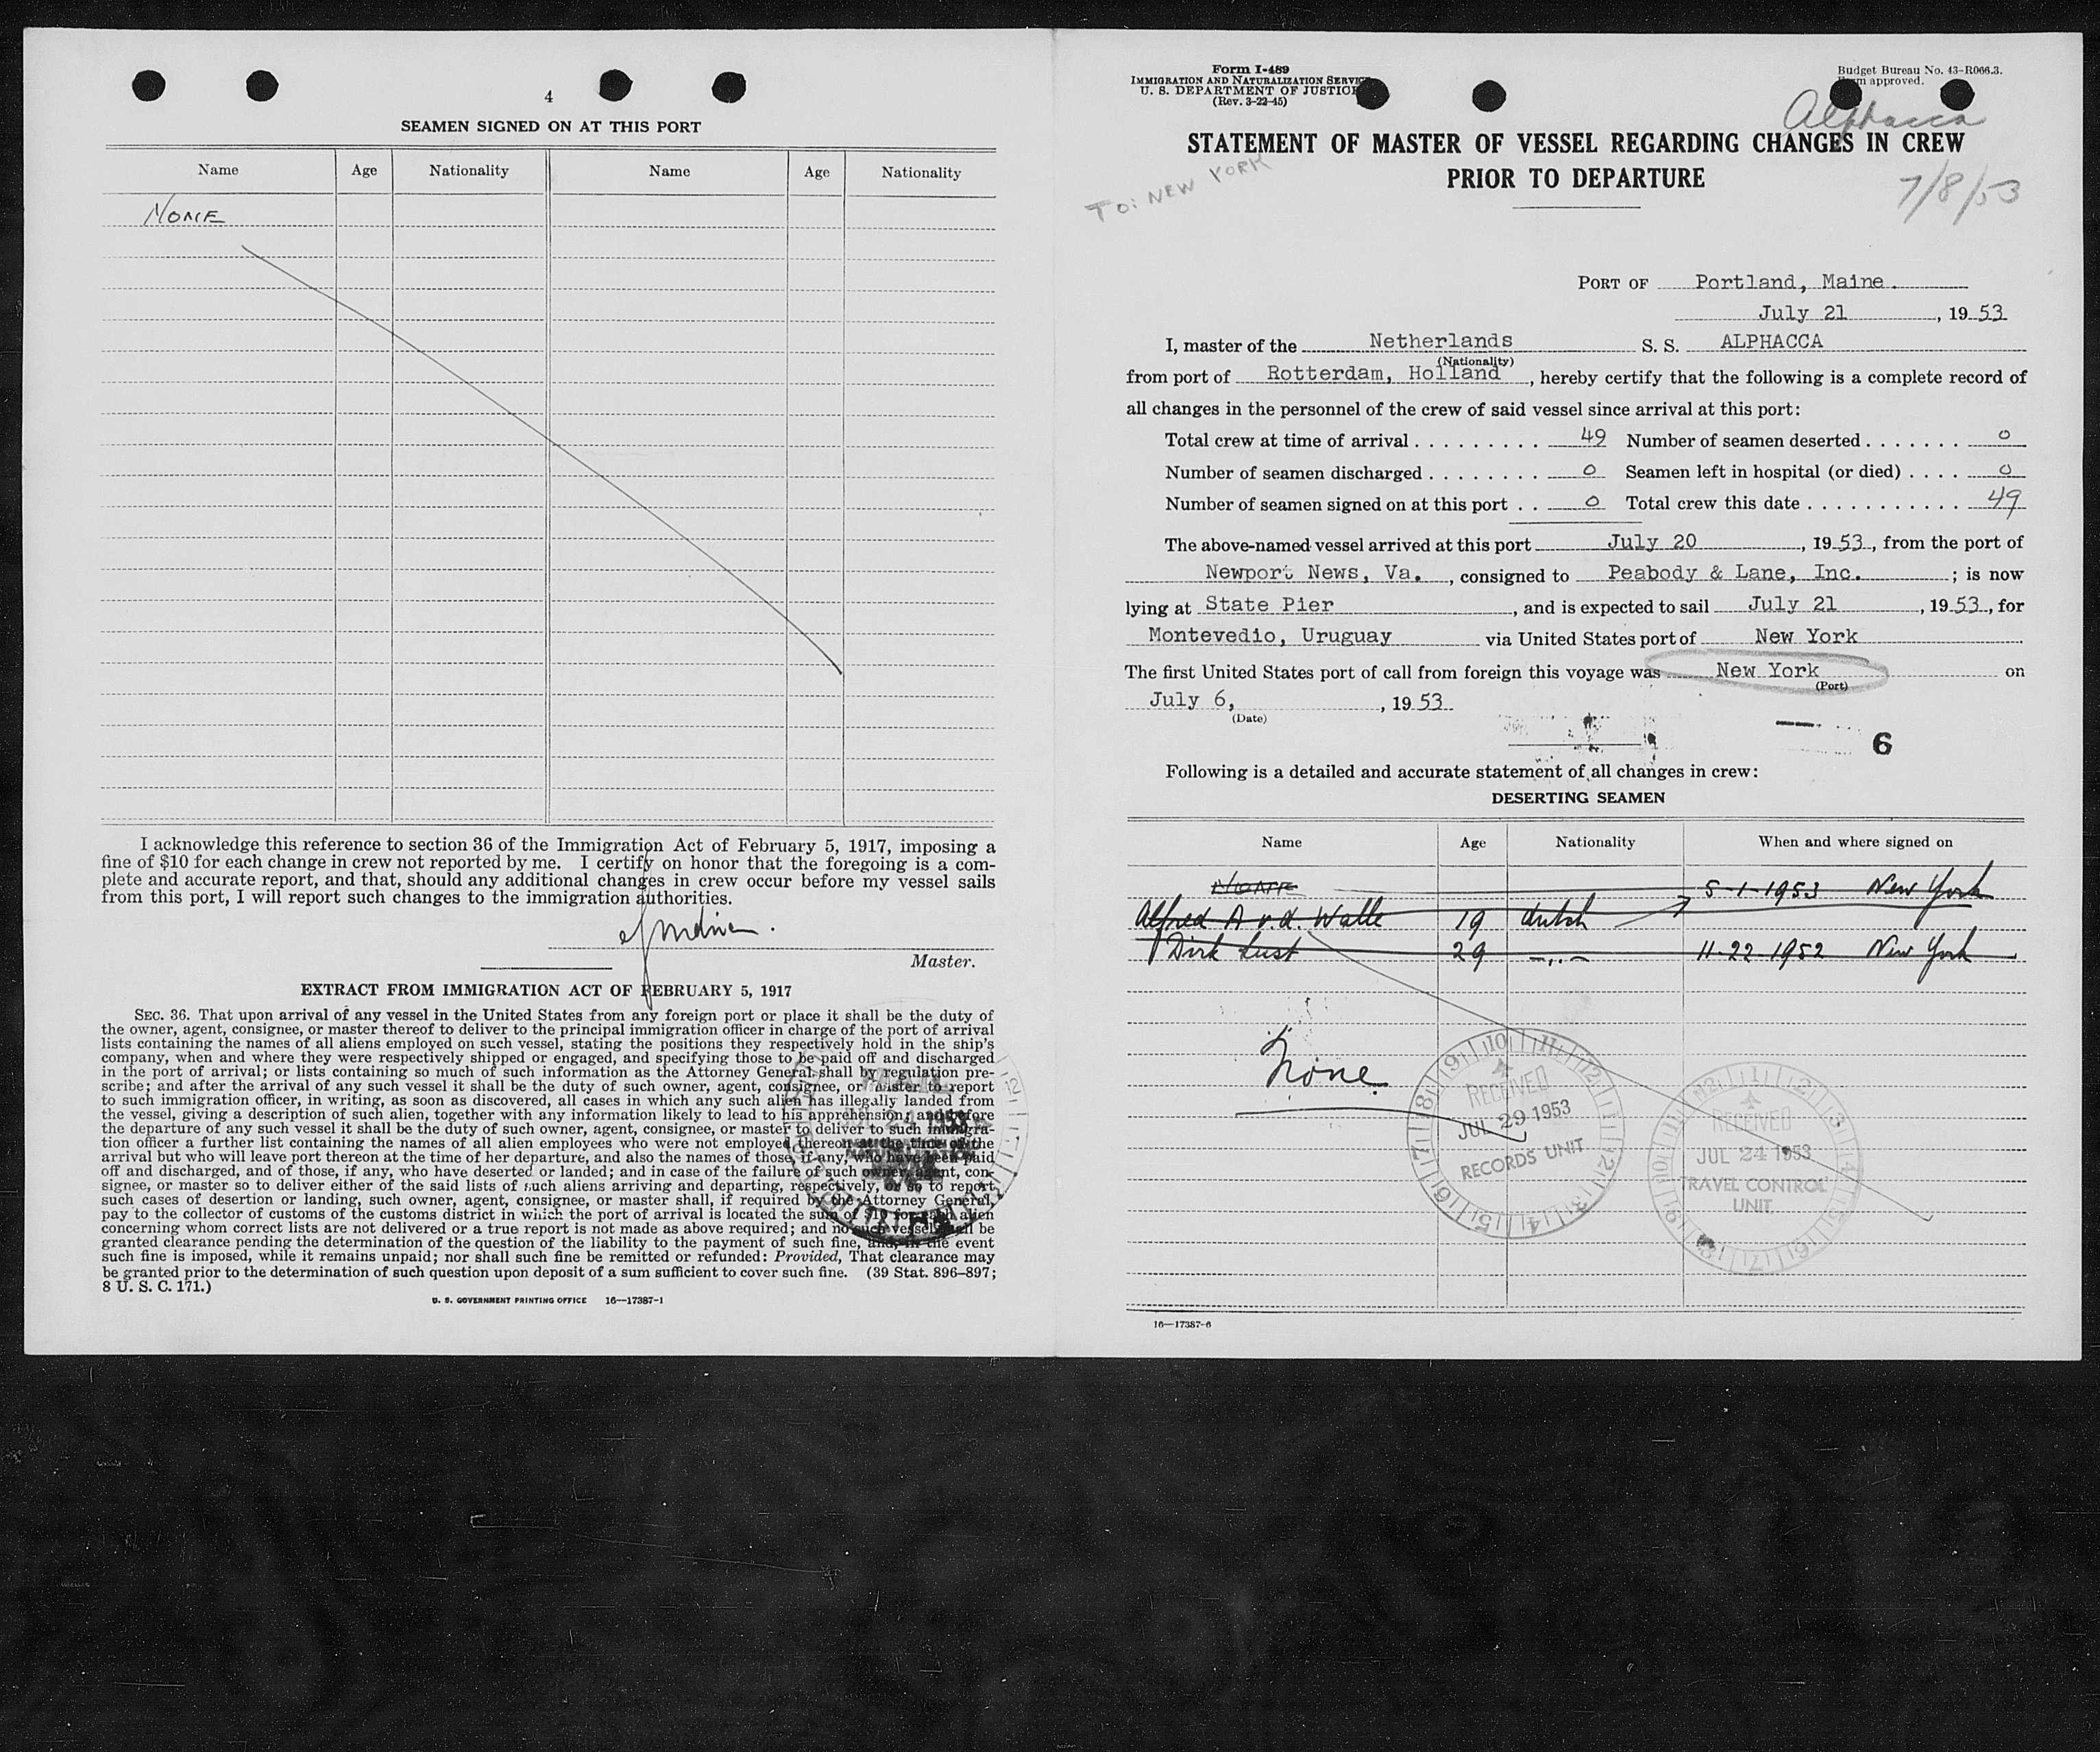 4
SEAMEN SIGNED ON AT THIS PORT
Name Age Nationality Name Age Nationality
NONE
I acknowledge this reference to section 36 of the Immigration Act of February 5, 1917, imposing a
fine of $10 for each change in crew not reported by me. I certify on honor that the foregoing is a com-
plete and accurate report, and that, should any additional changes in crew occur before my vessel sails
from this port, I will report such changes to the immigration authorities.
Master.
EXTRACT FROM IMMIGRATION ACT OF FEBRUARY 5, 1917
SEC. 36. That upon arrival of any vessel in the United States from any foreign port or place it shall be the duty of
the owner, agent, consignee, or master thereof to deliver to the principal immigration officer in charge of the port of arrival
lists containing the names of all aliens employed on such vessel, stating the positions they respectively hold in the ship's
company, when and where they were respectively shipped or engaged, and specifying those to be paid off and discharged
in the port of arrival; or lists containing so much of such information as the Attorney General shall by regulation pre-
scribe; and after the arrival of any such vessel it shall be the duty of such owner, agent, consignee, or master to report
to such immigration officer, in writing, as soon as discovered, all cases in which any such alien has illegally landed from
the vessel, giving a description of such alien, together with any information likely to lead to his apprehension; and before
the departure of any such vessel it shall be the duty of such owner, agent, consignee, or master to deliver to such immigra-
tion officer a further list containing the names of all alien employees who were not employed thereon at the time of the
arrival but who will leave port thereon at the time of her departure, and also the names of those, if any, who have been paid
off and discharged, and of those, if any, who have deserted or landed; and in case of the failure of such owner, agent, con-
signee, or master so to deliver either of the said lists of such aliens arriving and departing, respectively, or so to report
such cases of desertion or landing, such owner, agent, consignee, or master shall, if required by the Attorney General,
pay to the collector of customs of the customs district in which the port of arrival is located the sum of $10 for each alien
concerning whom correct lists are not delivered or a true report is not made as above required; and no such vessel shall be
granted clearance pending the determination of the question of the liability to the payment of such fine, and, in the event
such fine is imposed, while it remains unpaid; nor shall such fine be remitted or refunded: Provided, That clearance may
be granted prior to the determination of such question upon deposit of a sum sufficient to cover such fine. (39 Stat. 896–897;
8 U. S. C. 171.)
U. S. GOVERNMENT PRINTING OFFICE 16—17387-1
Form I-489
IMMIGRATION AND NATURALIZATION SERVICE
U. S. DEPARTMENT OF JUSTICE
(Rev. 3-22-45)
Budget Bureau No. 43-R066.3.
Form approved.
Alphacca
STATEMENT OF MASTER OF VESSEL REGARDING CHANGES IN CREW
PRIOR TO DEPARTURE
TO: NEW YORK
7/8/53
PORT OF Portland, Maine.
July 21, 1953
I, master of the Netherlands S. S. ALPHACCA
(Nationality)
from port of Rotterdam, Holland, hereby certify that the following is a complete record of
all changes in the personnel of the crew of said vessel since arrival at this port:
Total crew at time of arrival . . . . . . . . . 49 Number of seamen deserted . . . . . . . 0
Number of seamen discharged . . . . . . . . 0 Seamen left in hospital (or died) . . . . 0
Number of seamen signed on at this port . . 0 Total crew this date . . . . . . . . . . . 49
The above-named vessel arrived at this port July 20, 1953, from the port of
Newport News, Va., consigned to Peabody & Lane, Inc.; is now
lying at State Pier, and is expected to sail July 21, 1953, for
Montevedio, Uruguay via United States port of New York
The first United States port of call from foreign this voyage was New York on
(Port)
July 6, , 1953
(Date)
6
Following is a detailed and accurate statement of all changes in crew:
DESERTING SEAMEN
Name Age Nationality When and where signed on
NONE 5-1-1953 New York
Alfred A v.d. Walle 19 dutch
Dirk Lust 29 -„- 11-22-1952 New York
None
RECEIVED
JUL 29 1953
RECORDS UNIT
RECEIVED
JUL 24 1953
TRAVEL CONTROL
UNIT
16—17387-6